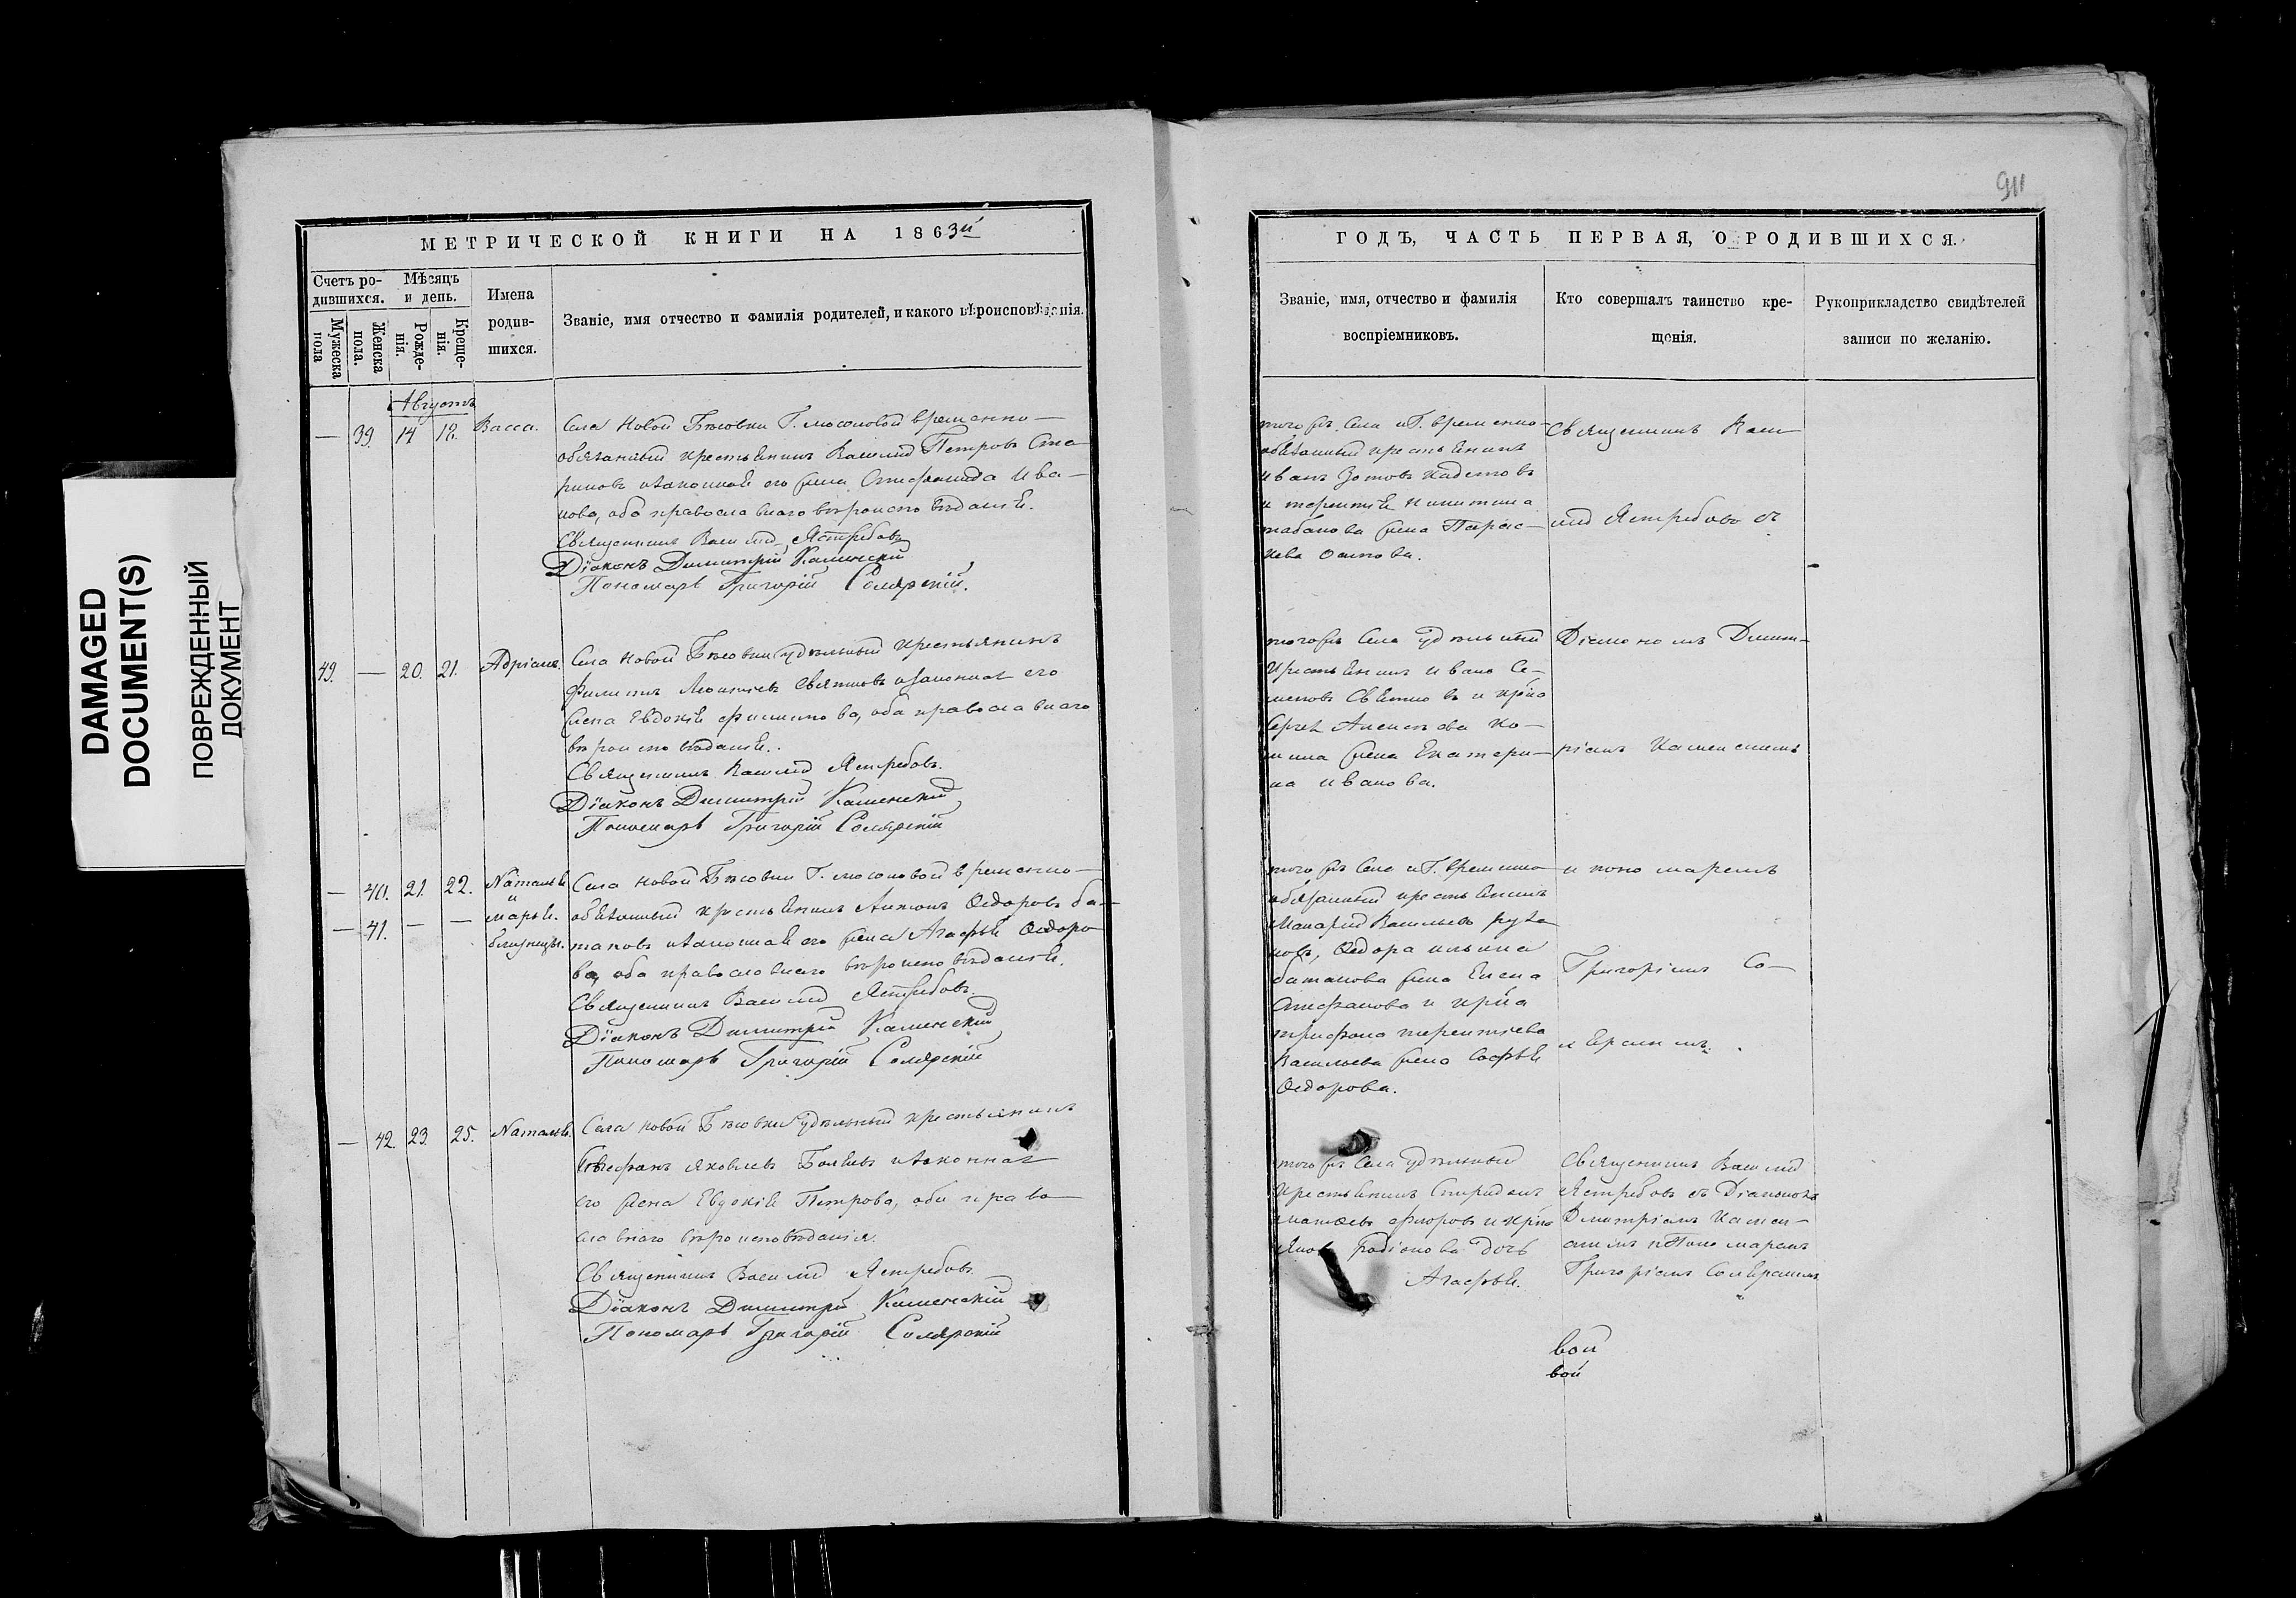 DAMAGED
DOCUMENT(S)
ПОВРЕЖДЕННЫЙ
ДОКУМЕНТ
МЕТРИЧЕСКОЙ КНИГИ НА 1863й
Счетъ ро-
дившихся.
Мужеска
пола
Женска
пола.
Мѣсяцъ
и день.
Рожде-
нія.
Креще-
нія.
Имена
родив-
шихся.
Званіе, имя отчество и фамилія родителей, и какого вѣроисповѣданія.
Августъ
— 39. 14 18. Васса. Села Новой Бѣсовки Г. Мосоловой временно—
обязанный крестьянинъ Василій Петровъ Ста
риковъ изаконная его жена Стефанида Ива—
нова, оба православнаго вѣроисповѣданія.
Священникъ Василій Ястребовъ
Діаконъ Димитрій Каменскій
Пономарь Григорій Солярскій.
49. — 20. 21. Адріанъ. Села Новой Бѣсовки удѣльный крестьянинъ
Филиппъ Леонтьевъ изаконная его
жена Евдокія Филиппова, оба православнаго
вѣроисповѣданія.
Священникъ Василій Ястребовъ.
Діаконъ Димитрій Каменскій
Пономарь Григорій Солярскій
— 40. 21. 22. Наталья Села Новой Бѣсовки Г. Мосоловой временно—
и
— 41. — — Марья. обязанный крестьянинъ Антонъ Ѳедоровъ ба—
близнецы. тановъ изаконная его жена Агафья Ѳедоро
ва, оба православнаго вѣроисповѣданія.
Священникъ Василій Ястребовъ.
Діаконъ Димитрій Каменскій
Пономарь Григорій Солярскій
— 42. 23. 25. Наталья. Села Новой Бѣсовки удѣльный крестьянинъ
Стефанъ Яковлевъ изаконная
его жена Евдокія Петрова, оба право—
славнаго вѣроисповѣданія.
Священникъ Василій Ястребовъ
Діаконъ Димитрій Каменскій
Пономарь Григорій Солярскій
911
ГОДЪ, ЧАСТЬ ПЕРВАЯ, О РОДИВШИХСЯ.
Званіе, имя, отчество и фамилія
воспріемниковъ.
Кто совершалъ таинство кре-
щенія.
Рукоприкладство свидѣтелей
записи по желанію.
того жъ Села иГ. временно—
обязанный крестьянинъ
Иванъ Зотовъ
и Терентія Никитина
жена Парас—
кева
Священникъ Васи
лій Ястребовъ съ
того жъ Села удѣльный
крестьянинъ Иванъ Се—
меновъ и кр҃на
Сергея Алексѣева Ко—
жена Екатери—
на Иванова.
Діакономъ Димит—
ріемъ Каменскимъ
того жъ Села иГ. временно
обязанный крестьянинъ
Макарій Васильевъ
Ѳедора Ильина
батанова жена Елена
Стефанова и кр҃на
Трифона Терентьева
Васильева жена Софья
Ѳедорова.
и пономаремъ
Григоріемъ Со—
лярскимъ.
того жъ Села удѣльный
крестьянинъ Спиридонъ
и кр҃на
Якова Родіонова дочь
Агафья.
Священникъ Василій
Ястребовъ съ Діакономъ
Димитріемъ Камен—
скимъ иПономаремъ
Григоріемъ Солярскимъ
вой
вой